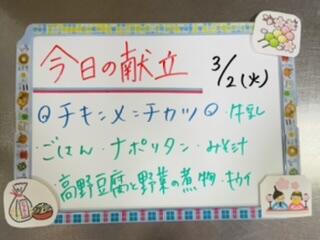 今日の献立 3/2(火)
◎チキンメンチカツ◎・牛乳
・ごはん・ナポリタン・みそ汁
・高野豆腐と野菜の煮物・キウイ